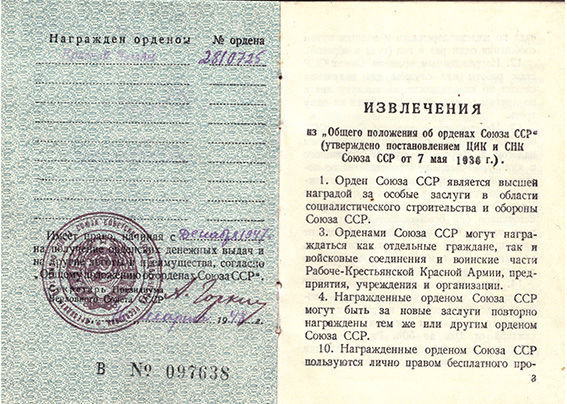 Награжден орденом № ордена
Красной Звезды 2810725
Имеет право, начиная с Декабря 1947
на получение орденских денежных выдач и
на другие льготы и преимущества, согласно
„Общему положению об орденах Союза ССР“
Секретарь Президиума
Верховного Совета СССР А. Горкин
марта 194 г.
В № 097638
ИЗВЛЕЧЕНИЯ
из „Общего положения об орденах Союза ССР“
(утверждено постановлением ЦИК и СНК
Союза ССР от 7 мая 1936 г.).
1. Орден Союза ССР является высшей
наградой за особые заслуги в области
социалистического строительства и обороны
Союза ССР.
3. Орденами Союза ССР могут награ-
ждаться как отдельные граждане, так и
войсковые соединения и воинские части
Рабоче-Крестьянской Красной Армии, пред-
приятия, учреждения и организации.
4. Награжденные орденом Союза ССР
могут быть за новые заслуги повторно
награждены тем же или другим орденом
Союза ССР.
10. Награжденные орденом Союза ССР
пользуются лично правом бесплатного про-
3